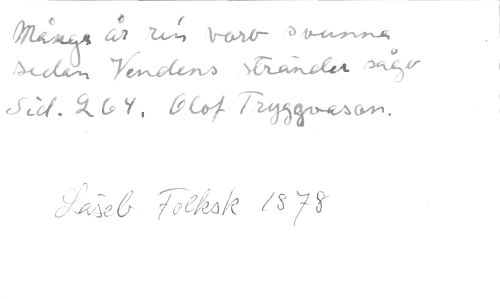 Många år ren voro svunna
sedan Vendens stränder sågo
Sid. 264. Olof Tryggvason.
Läseb Folksk 1878